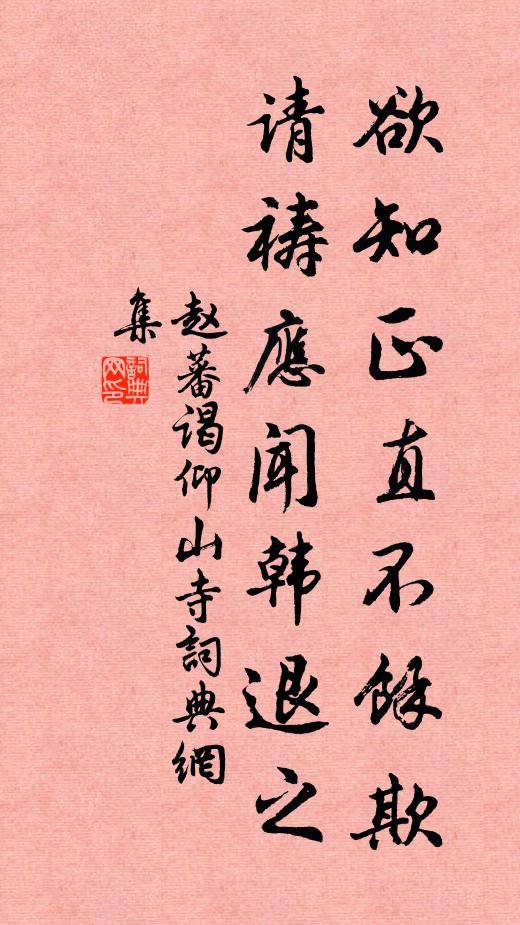 欲知正直不馀欺
请祷應闻韩退之
赵蕃谒仰山寺詞典網
集
詞典网印